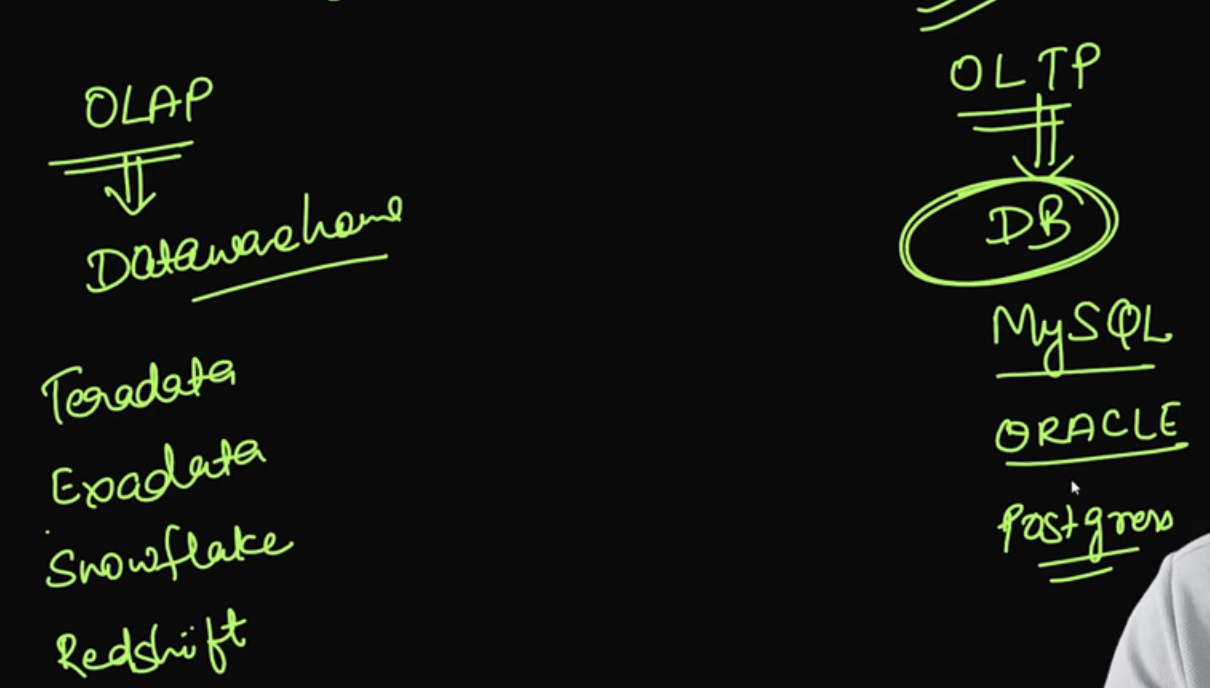 OLAP
Datawarehouse
Teradata
Exadata
Snowflake
Redshift
OLTP
DB
MySQL
ORACLE
Postgress